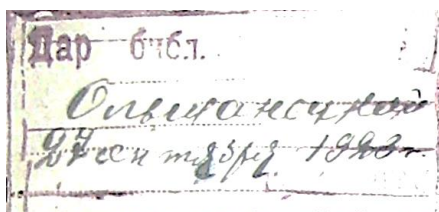 Дар библ.
Ольшанский
27 сентября 1923